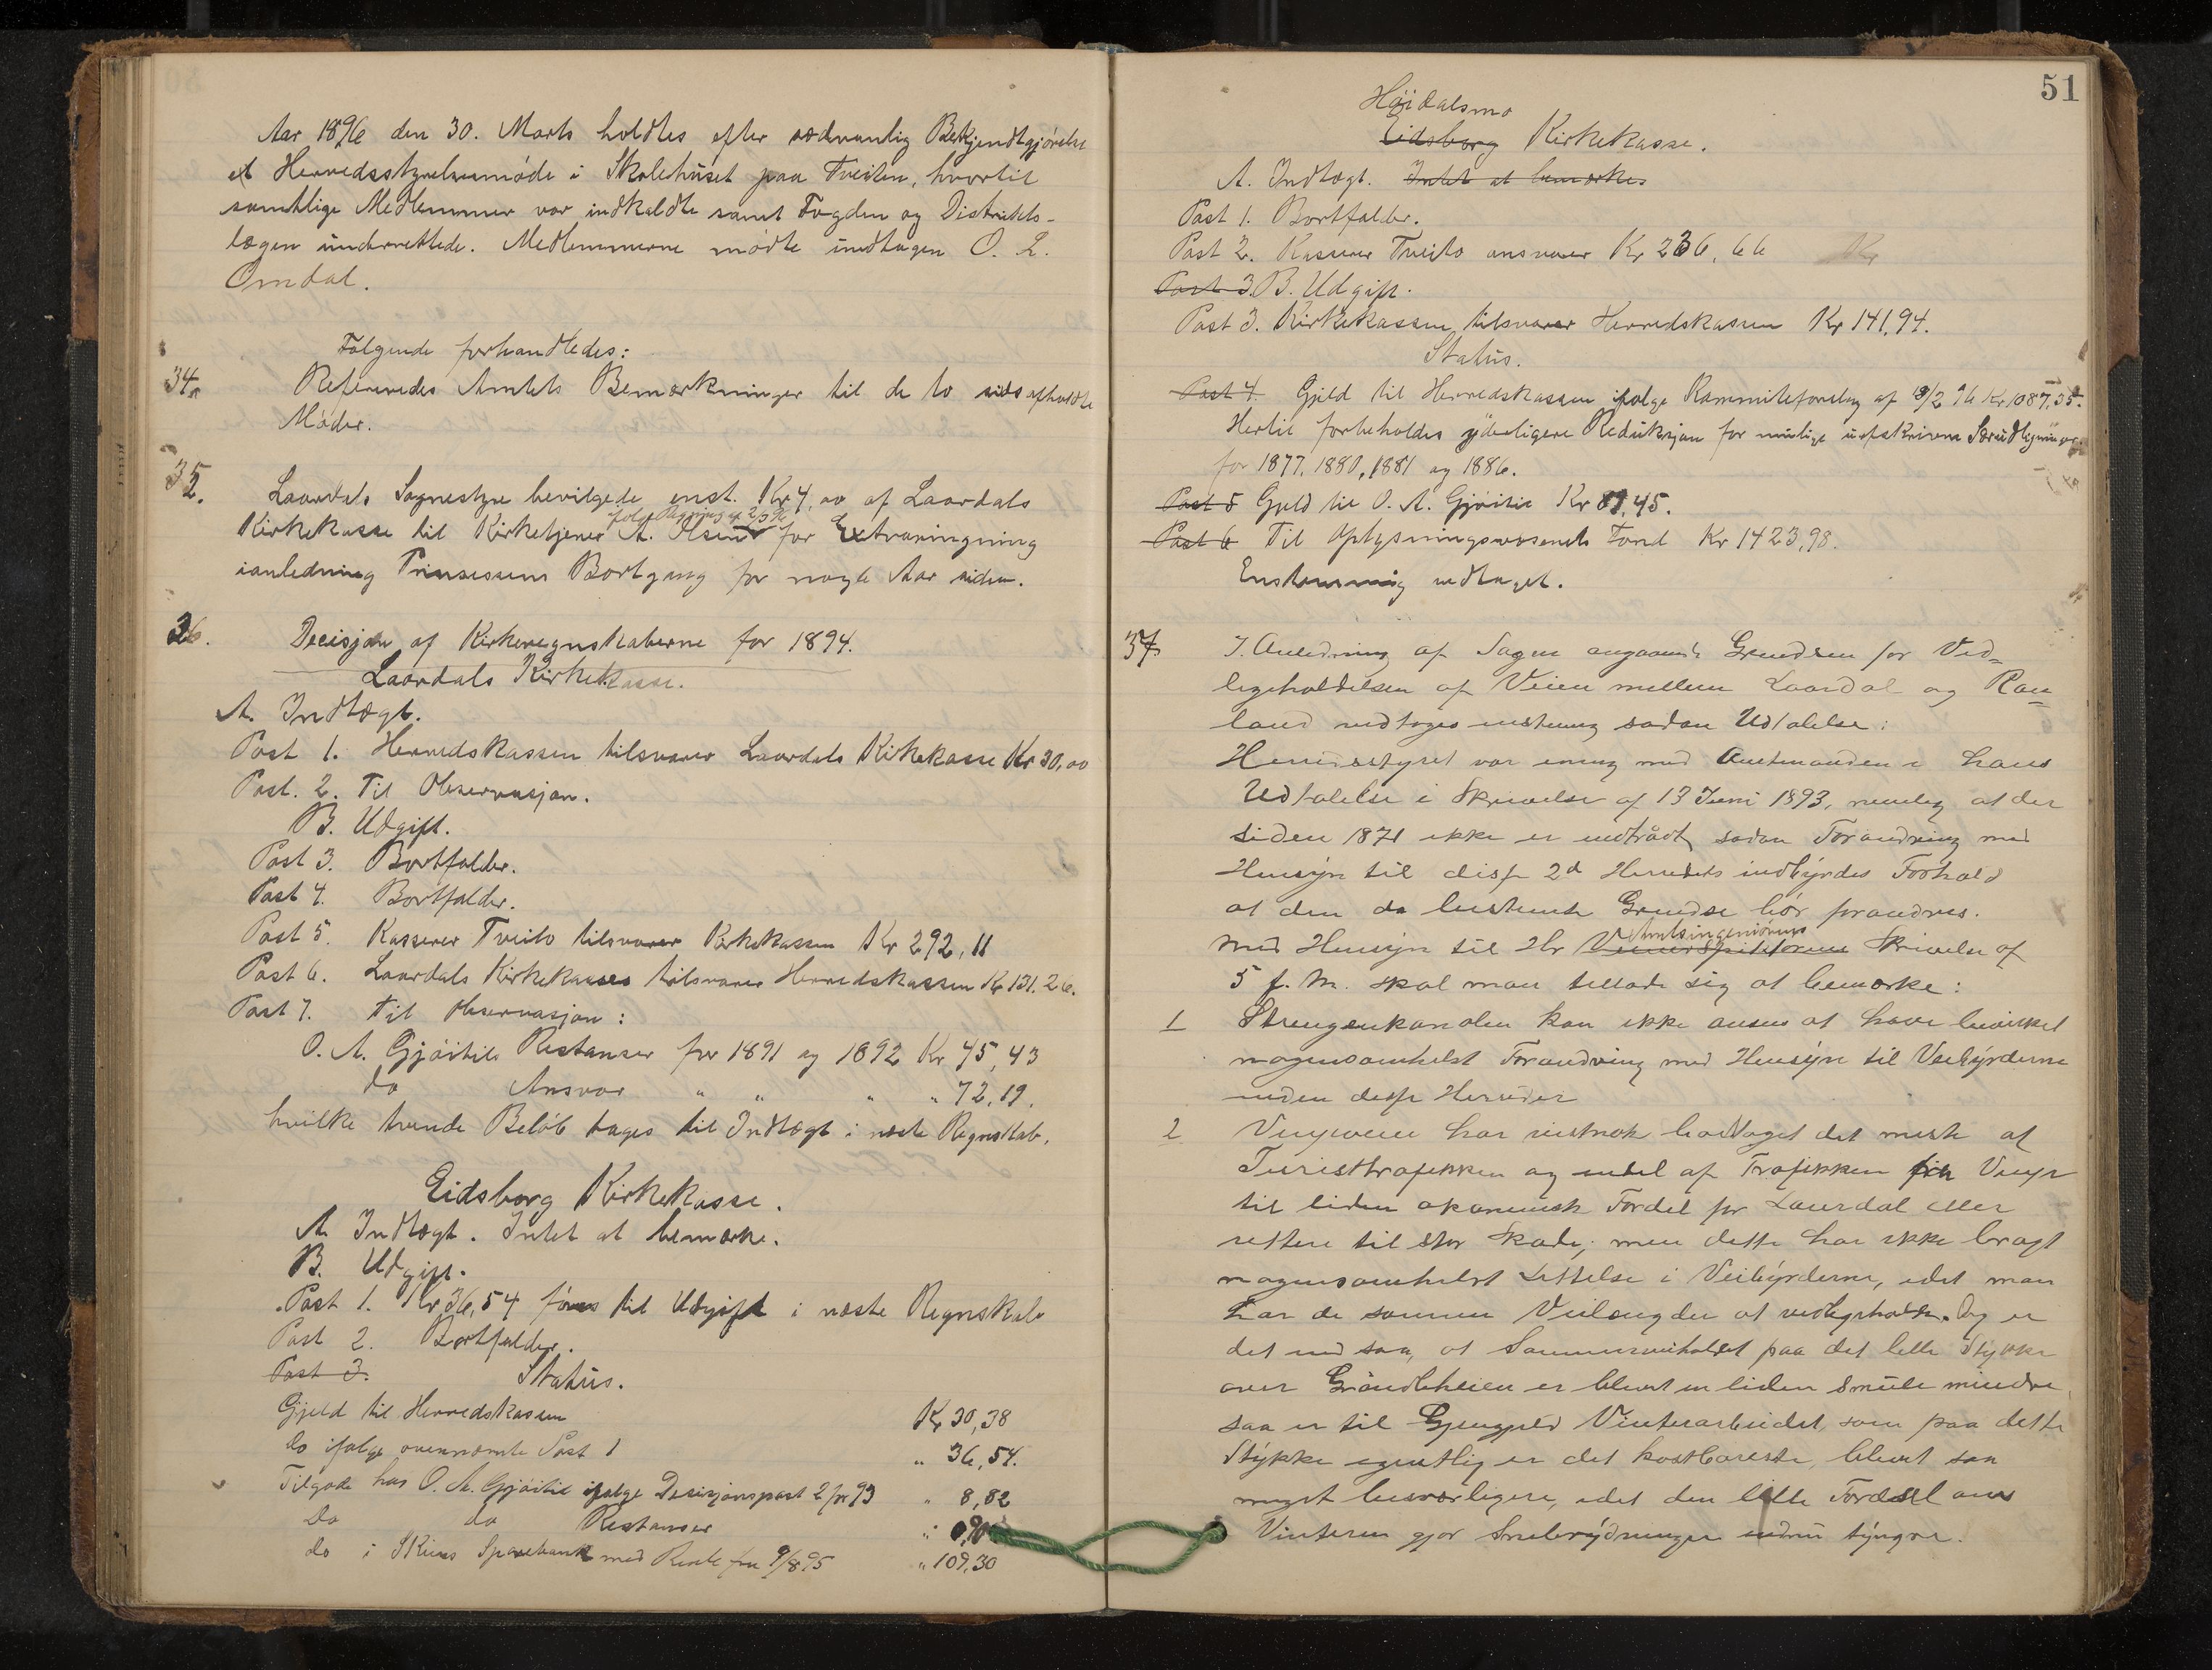 Aar 1896 den 30. Marts holdtes efter sædvanlig Bekjendtgjørelse
et Herredsstyrelsesmøde i Skolehuset paa Tveiten, hvortil
samtlige Medlemmer var indkaldte samt Fogden og Distrikts-
lægen underrettede. Medlemmerne mødte undtagen O. L.
Omdal.
Følgende forhandledes:
34. Refereredes Amtets Bemærkninger til de to sidst afholdte
Møder.
35. Laardals Sognestyre bevilgede enst. Kr 4,00 af Laardals
Kirkekasse til Kirketjener A. Olsen for Extraringning
ianledning Prinsessens Bortgang for nogle Aar siden.
36. Decisjon af Kirkeregnskaberne for 1894.
Laardals Kirkekasse.
A. Indtægt.
Post 1. Herredskassen tilsvarer Laardals Kirkekasse Kr 30,00
Post. 2. Til Observasjon.
B. Udgift.
Post 3. Bortfalder.
Post 4. Bortfalder.
Post 5. Kasserer Tveito tilsvarer Kirkekassen Kr 292,11
Post 6. Laardals Kirkekasse tilsvarer Herredskassen Kr 131.26.
Post 7. Til Observasjon:
O. A. Gjøitils Restanser for 1891 og 1892 Kr 45,43
do Ansvar " " " " 72,19.
hvilke tvende Beløb tages til Indtægt i næste Regnskab.
Eidsborg Kirkekasse.
A. Indtægt. Intet at bemærke.
B. Udgift.
Post 1. Kr 36,54 føres til Udgift i næste Regnskab
Post 2. Bortfalder.
Post 3. Status.
Gjeld til Herredskassen Kr 30,38
do ifølge ovennævnte Post 1 " 36,54.
Tilgode hos O. A. Gjøitil ifølge Decisjonspost 2 for 93 " 8,82
do do Restanser "
do i Skiens Sparebank med Rente fra 9/8 95 " 109,30
51
Høidalsmo
Eidsborg Kirkekasse.
A. Indtægt. Intet at bemærke.
Post 1. Bortfalder.
Post 2. Kasserer Tveito ansvarer Kr 236,66 Kr
Post 3. B. Udgift.
Post 3. Kirkekassen tilsvarer Herredskassen Kr 141,94.
Status.
Post 4. Gjeld til Herredskassen ifølge Kommiteforslag af 8/2 96 Kr 1087,35.
Hertil forbeholdes yderligere Reduksjon for mulige uafskrivne Særudligninger
for 1877, 1880, 1881 og 1886.
Post 5 Gjeld til O. A. Gjøitil Kr 81,45.
Post 6 Til Oplysningsvæsenets Fond Kr 1423,98.
Enstemmig vedtaget.
37 I Anledning af Sagen angaaende Grændsen for Ved-
ligeholdelsen af Veien mellem Laardal og Rau-
land vedtoges enstemmig sådan Udtalelse:
Herredsstyret var enig med Amtmanden i hans
Udtalelse i Skrivelse af 13 Juni 1893, nemlig at der
siden 1871 ikke er indtrådt sådan Forandring med
Hensyn til disse 2d Herreders indbyrdes Forhold
at den da bestemte Grændse bør forandres.
Med Hensyn til Hr Amtsingeniørens Skrivelse af
5 f. M. skal man tillade sig at bemærke:
1 Strengenkanalen kan ikke anses at have bevirket
nogensomhelst Forandring med Hensyn til Veibyrderne
inden disse Herreder
2 Vinjeveien har vistnok borttaget det meste af
Turisttrafikken og endel af Trafikken fra Vinje
til liden økonomisk Fordel for Laurdal eller
rettere til stor Skade; men dette har ikke bragt
nogensomhelst Lettelse i Veibyrderne, idet man
har de samme Veilængder at vedligeholde. Og er
det end saa, at Sommerveiholdet paa det lille Stykke
over Grøndlheien er blevet en liden Smule mindre,
saa er til Gjengjeld Vinterarbeidet, som paa dette
Stykke egentlig er det kostbareste, blevet saa
meget besværligere, idet den lille Færdsel om
Vinteren gjør Snebrydningen endnu tyngre.